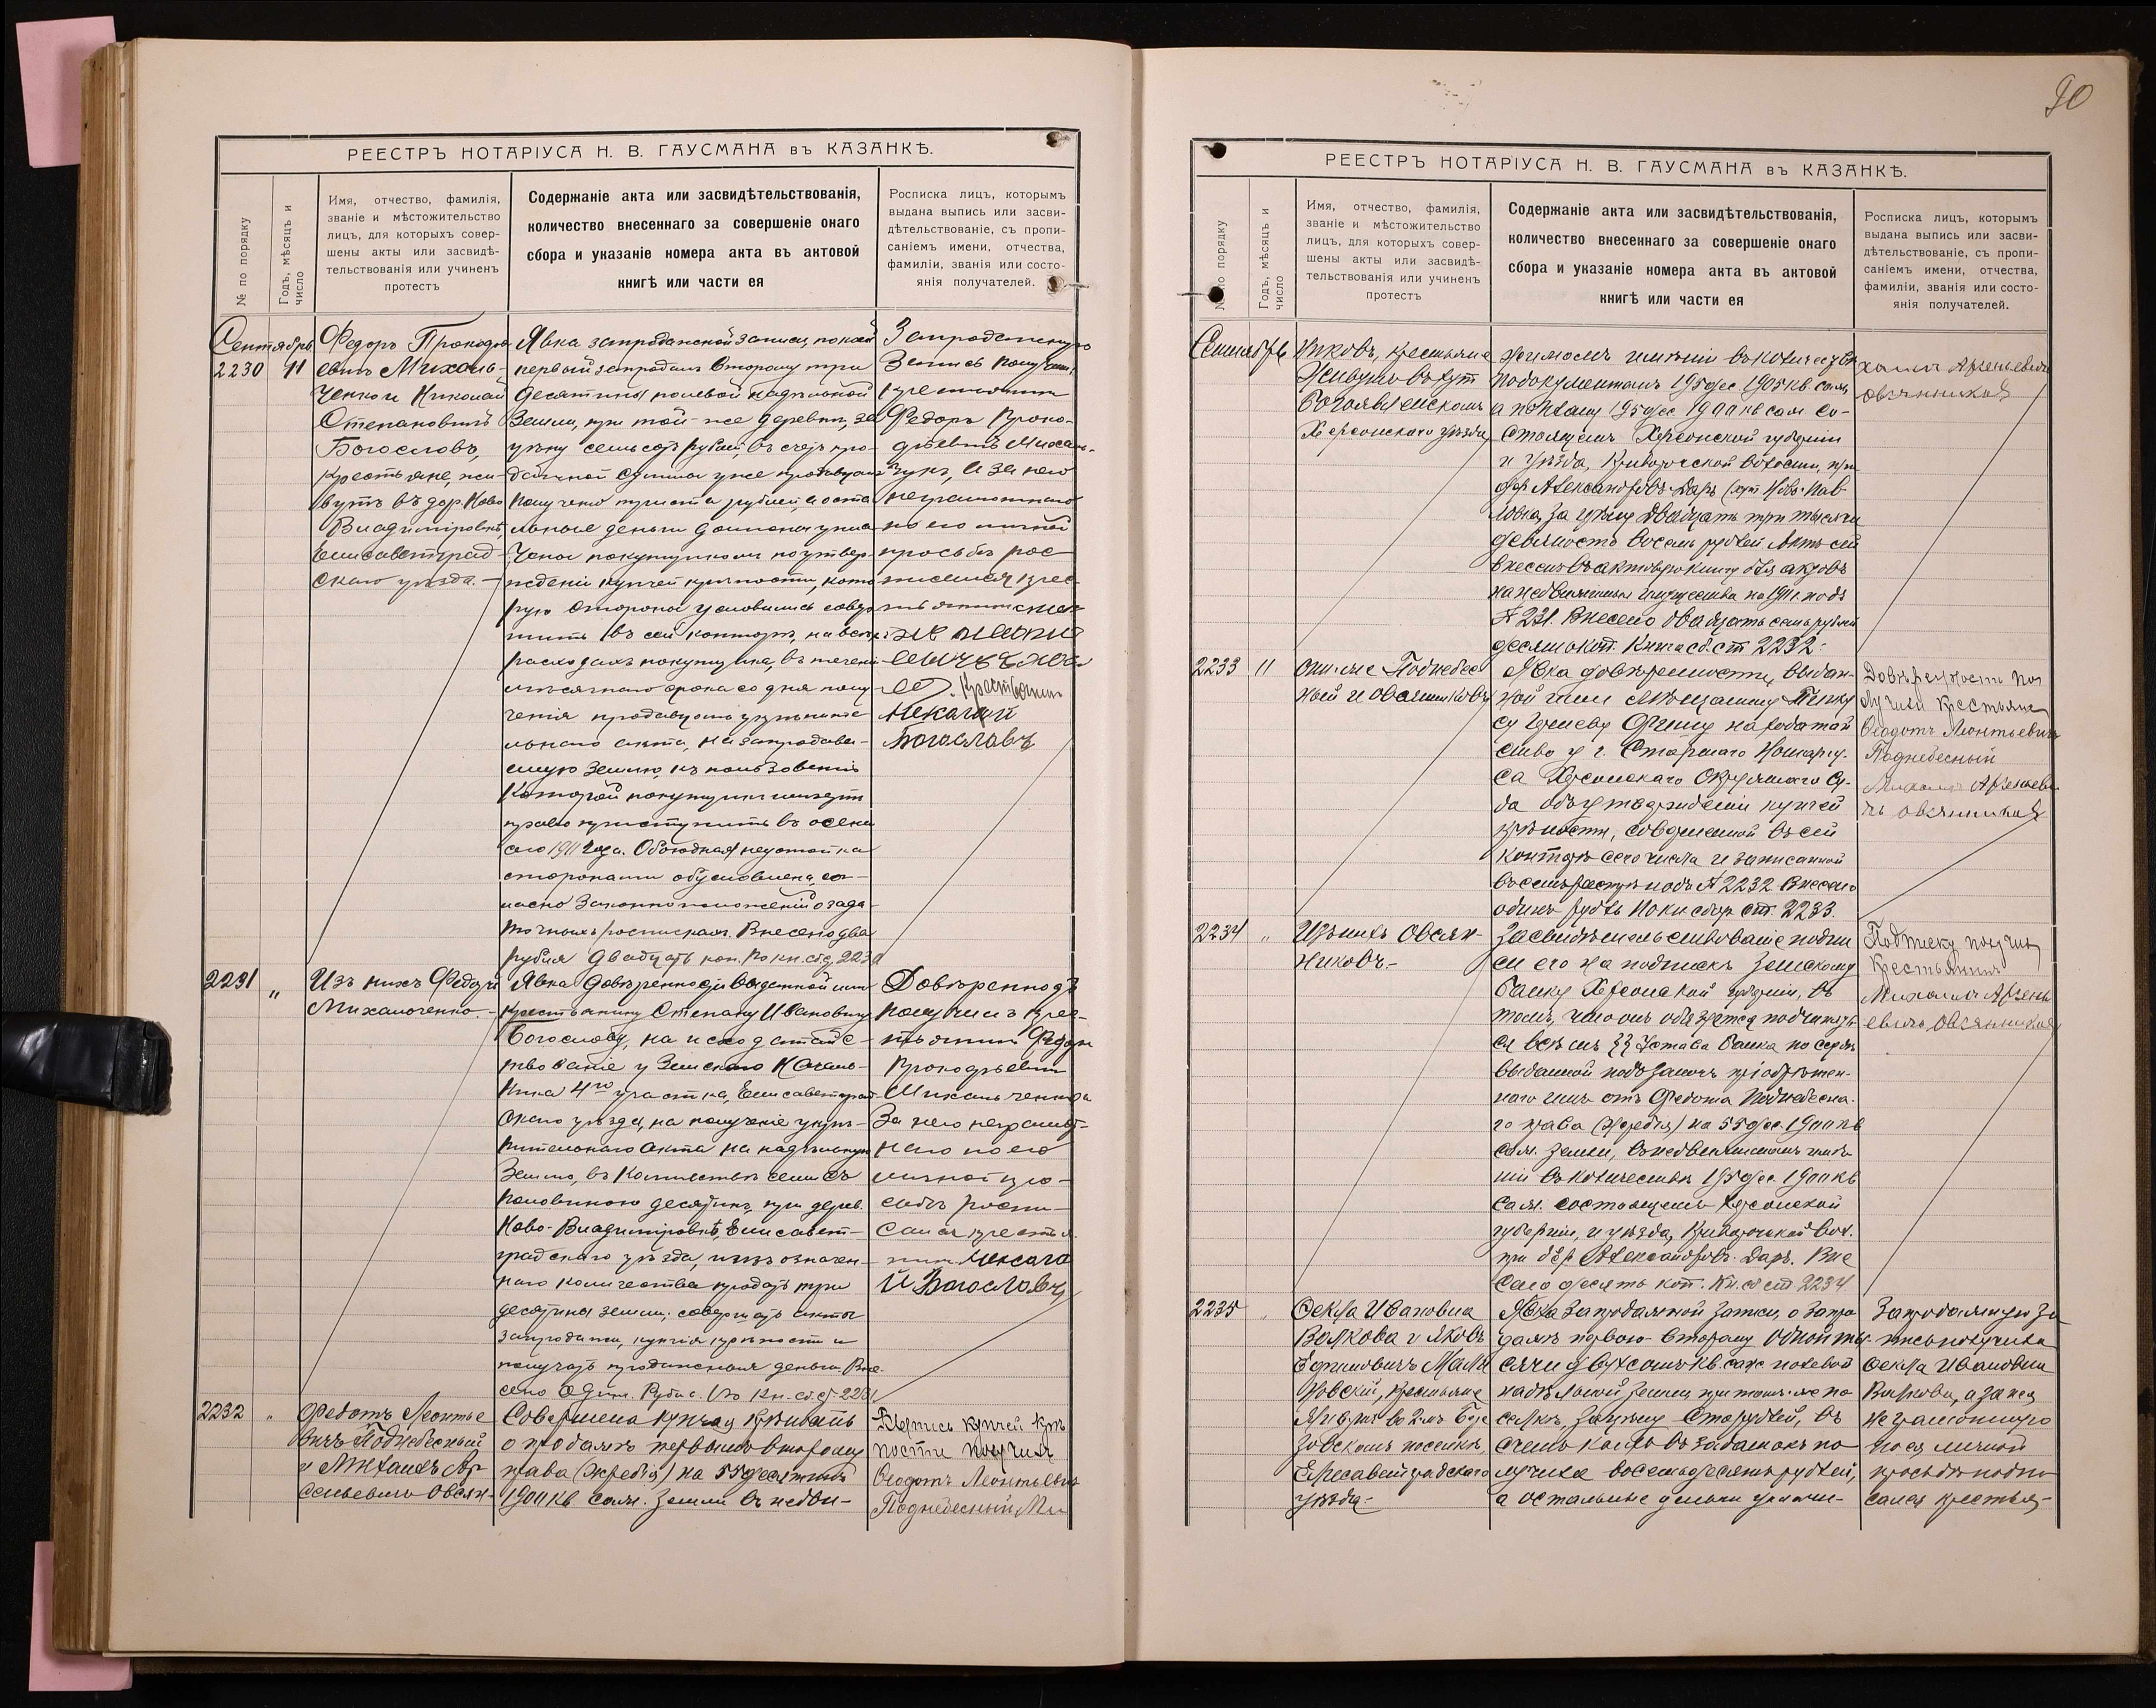 90
РЕЕСТРЪ НОТАРІУСА Н. В. ГАУСМАНА въ КАЗАНКѢ.
№ по порядку
Годъ, мѣсяцъ и
число
Имя, отчество, фамилія,
званіе и мѣстожительство
лицъ, для которыхъ совер-
шены акты или засвидѣ-
тельствованія или учиненъ
протестъ
Содержаніе акта или засвидѣтельствованія,
количество внесеннаго за совершеніе онаго
сбора и указаніе номера акта въ актовой
книгѣ или части ея
Росписка лицъ, которымъ
выдана выпись или засви-
дѣтельствованіе, съ пропи-
саніемъ имени, отчества,
фамиліи, званія или состо-
янія получателей.
Сентябрь
2230 11
Федоръ
евичъ
ченко и Николай
Степановичъ
Богословъ,
крестьяне, жи-
вутъ въ дер. Ново
Владиміровкѣ,
Елисаветград-
скаго уѣзда.-
Явка запродажной записи, по коей
первый запродалъ второму три
десятины полевой надѣльной
земли, при той-же деревнѣ, за
цѣну семьсотъ рублей, въ счетъ про-
дажной суммы уже продавцомъ
получено триста рублей, а оста
льные деньги должны упла
чены покупщикомъ по утвер-
жденіи купчей крѣпости, кото
рую стороны условились совер
шить въ сей конторѣ, на
расходахъ покупщика, въ течені
мѣсячнаго срока со дня полу
ченія продавцомъ укрѣпите
льнаго акта, на запродава-
емую землю, къ пользованію
которой покупщикъ имѣетъ
право приступить въ осени
сего 1911 года. Обоюдная неустойка
сторонами обусловлена, сог-
ласно Законоположеній о зада-
точныхъ роспискахъ. Внесено два
рубля двадцать коп. По кн. сб. ст. 2230
Запродажную
Запись получилъ
крестьянинъ
Федоръ Проко-
фьевичъ
а за него
неграмотнаго
по его личной
просьбѣ рос
писался крес
Крестьянин
Богославъ
2231 "
Изъ нихъ Федоръ
Михальченко.-
Явка довѣренности выданной имъ
крестьянину Степану Ивановичу
Богослову, на исходатайс-
твованіе у Земскаго Началь-
ника 4го участка, Елисаветград-
скаго уѣзда, на полученіе укрѣ-
пительнаго акта на надѣльную
Землю, въ количествѣ семи съ
половиною десятинъ, при дерев.
Ново-Владиміровкѣ, Елисавет-
градскаго уѣзда, изъ означен-
наго количества продать три
десятины земли; совершать акты
запродажи, купчія крѣпости и
получать продажныя деньги. Вне-
сено Одинъ Рубль. По кн. сб. ст. 2231
Довѣренность
получилъ крес-
тьянинъ Федоръ
Прокофьевичъ
Михальченко, а
За него неграмот-
наго по его
личной про-
сьбѣ роспи-
сался крестья
нин
й Богославъ
2232 "
Федотъ Леонтье
вичъ Поднебесный
и Михаилъ Ар-
сеньевичъ Овсян-
Совершена купчая крѣпость
о продажѣ первымъ второму
права (жребія) на 55 десятинъ
1900 кв. саж. земли въ недви-
Выпись купчей крѣ
пости получилъ
Ѳеодотъ Леонтьевичъ
Поднебесный, Ми
РЕЕСТРЪ НОТАРІУСА Н. В. ГАУСМАНА въ КАЗАНКѢ.
№ по порядку
Годъ, мѣсяцъ и
число
Имя, отчество, фамилія,
званіе и мѣстожительство
лицъ, для которыхъ совер-
шены акты или засвидѣ-
тельствованія или учиненъ
протестъ
Содержаніе акта или засвидѣтельствованія,
количество внесеннаго за совершеніе онаго
сбора и указаніе номера акта въ актовой
книгѣ или части ея
Росписка лицъ, которымъ
выдана выпись или засви-
дѣтельствованіе, съ пропи-
саніемъ имени, отчества,
фамиліи, званія или состо-
янія получателей.
Сентябрь
никовъ, крестьяне
живущіе въ хут
Богоявленскомъ
Херсонскаго уѣзда
жимомъ имѣніи въ количествѣ
по документамъ 195 дес 1905 кв. саж,
а по плану 195 дес 1900 кв саж со-
стоящемъ Херсонской губерніи
и уѣзда, Криворожской волости, при
дер. Александровъ-Даръ (хут Ново-Пав-
ловка, за цѣну двадцать три тысячи
девяносто восемь рублей Актъ сей
внесенъ въ актовую книгу для актовъ
на недвижимыя имущества на 1911 г. подъ
№ 231. Внесено двадцать семь рублей
десять коп. Книга сб. ст 2232.
хаилъ Арсеньевичъ
овсянниковъ
2233 11
Они-же Поднебес
ный и Овсянниковъ
Явка довѣренности, выдан-
ной ими мѣщанину
на ходатай
ство у г. Старшаго Нотаріу-
са Херсонскаго Окружнаго Су-
да объ утвержденіи купчей
крѣпости, совершенной въ сей
конторѣ сего числа и записанной
въ семъ реестрѣ подъ № 2232 Внесено
одинъ рубль По кн сбор. ст. 2233.
Довѣренность по
лучили крестьяне
Ѳеодотъ Леонтьевичъ
Поднебесный
Михаилъ Арсеньеви
чъ овсянниковъ
2234 "
Изъ нихъ Овсян-
никовъ.-
Засвидѣтельствованіе подпи
си его на подпискѣ Земскому
банку Херсонской губерніи, въ
томъ, что онъ обязуется подчинять-
ся всѣмъ §§ Устава банка по ссудѣ
выданной подъ залогъ пріобрѣтен-
наго имъ отъ Федота Поднебесна-
го права (жребія) на 55 дес. 1900 кв
саж. земли, въ недвижимомъ имѣ-
ніи въ количествѣ 195 дес. 1900 кв
саж. состоящемъ Херсонской
губерніи, и уѣзда, Криворожской вол.
при дер. Александровъ-Даръ. Вне
сено десять коп. Кн. сб ст 2234
Подписку получилъ
Крестьянинъ
Михаилъ Арсень
евичъ Овсянниковъ
2235 "
Ѳекла Ивановна
Волкова и Яковъ
Ефимовичъ
новскій, крестьяне
поселкѣ,
Елисаветградскаго
уѣзда-
Явка запродажной записи, о запро
дажѣ первою второму одной ты-
сячи двухсотъ кв. саж полевой
надѣльной земли при томъ-же по
селкѣ, за цѣну сто рублей, въ
счетъ коихъ въ задатокъ по
лучила восемьдесятъ рублей,
а остальные деньги
Запродажную за
пись получила
Ѳекла Ивановна
Волкова, а за нея
неграмотную
по ея личной
просьбѣ подпи
сался крестья-